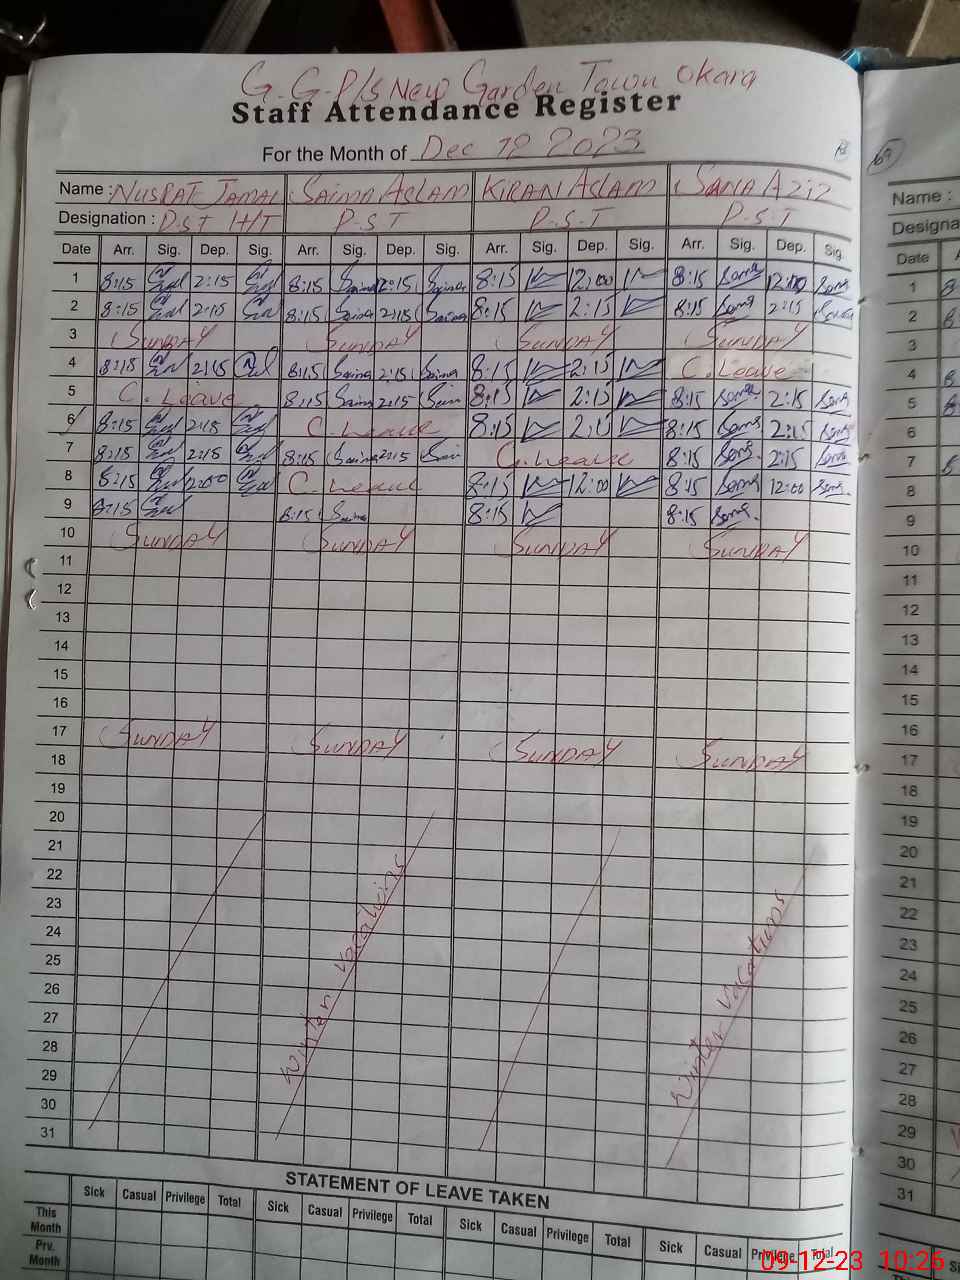 G.G.P/s New Garden Town Okara
Staff Attendance Register
For the Month of Dec 12 2023
Name : NUSRAT JAMAL SAIMA ASLAM KIRAN ASLAM SANA AZIZ
Designation : P.S.T H/T P.S.T P.S.T P.S.T
Date Arr. Sig. Dep. Sig. Arr. Sig. Dep. Sig. Arr. Sig. Dep. Sig. Arr. Sig. Dep. Sig.
1 8:15 2:15 8:15 Saima 12:15 Saima 8:15 12:00 8:15 Sana 12:00 Sana
2 8:15 2:15 8:15 Saima 2:15 Saima 8:15 2:15 8:15 Sana 2:15 Sana
3 SUNDAY SUNDAY SUNDAY SUNDAY
4 8:15 2:15 8:15 Saima 2:15 Saima 8:15 2:15 C. Leave
5 C. Leave 8:15 Saima 2:15 8:15 2:15 8:15 Sana 2:15 Sana
6 8:15 2:15 C. Leave 8:15 2:15 8:15 Sana 2:15 Sana
7 8:15 2:15 8:15 Saima 2:15 C. Leave 8:15 Sana 2:15 Sana
8 8:15 12:00 C. Leave 8:15 12:00 8:15 Sana 12:00 Sana.
9 8:15 8:15 Saima 8:15 8:15 Sana.
10 SUNDAY SUNDAY SUNDAY SUNDAY
11
12
13
14
15
16
17 SUNDAY SUNDAY SUNDAY SUNDAY
18
19
20
21
22
23
24
25
26
27
28
29
30
31
Winter vacations
Winter vacations
STATEMENT OF LEAVE TAKEN
Sick Casual Privilege Total Sick Casual Privilege Total Sick Casual Privilege Total Sick Casual Privilege Total
This Month
Prv. Month
69
Name :
Designa
Date
1 8
2 8
3
4 8
5 8
6
7 8
8
9
10
11
12
13
14
15
16
17
18
19
20
21
22
23
24
25
26
27
28
29
30
31
09-12-23 10:26